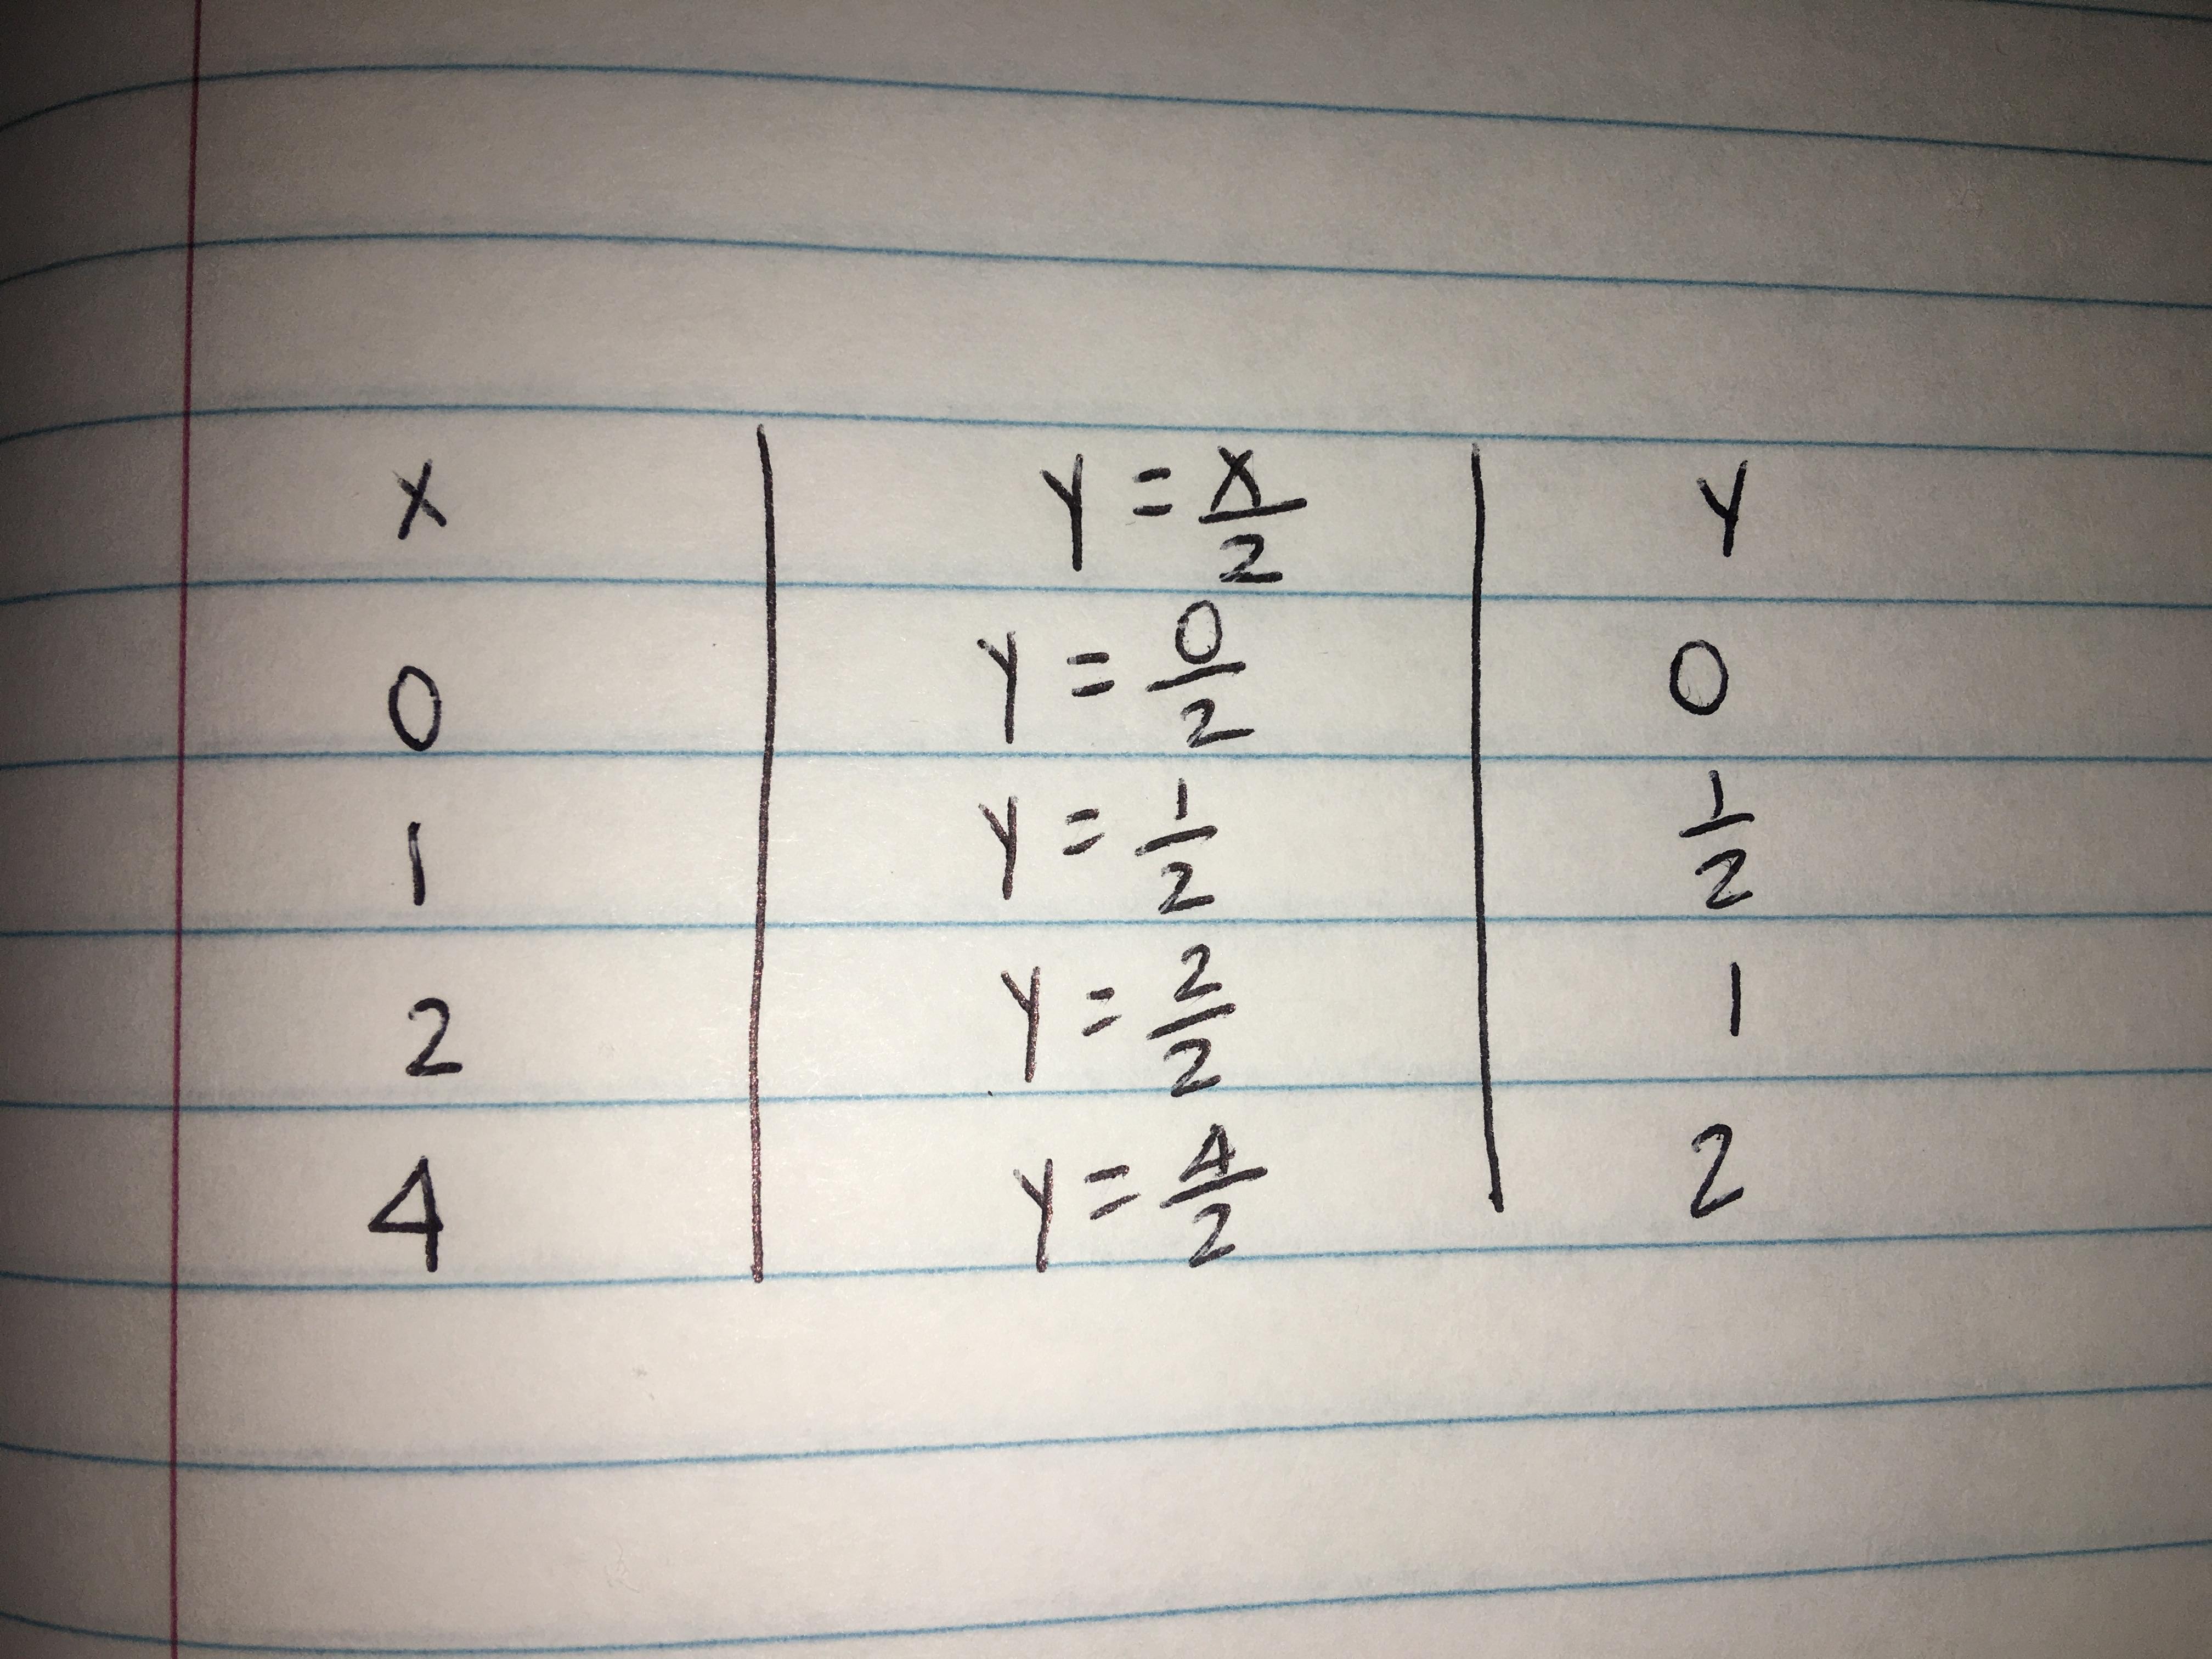 x | y = x/2 | y
0 | y = 0/2 | 0
1 | y = 1/2 | 1/2
2 | y = 2/2 | 1
4 | y = 4/2 | 2